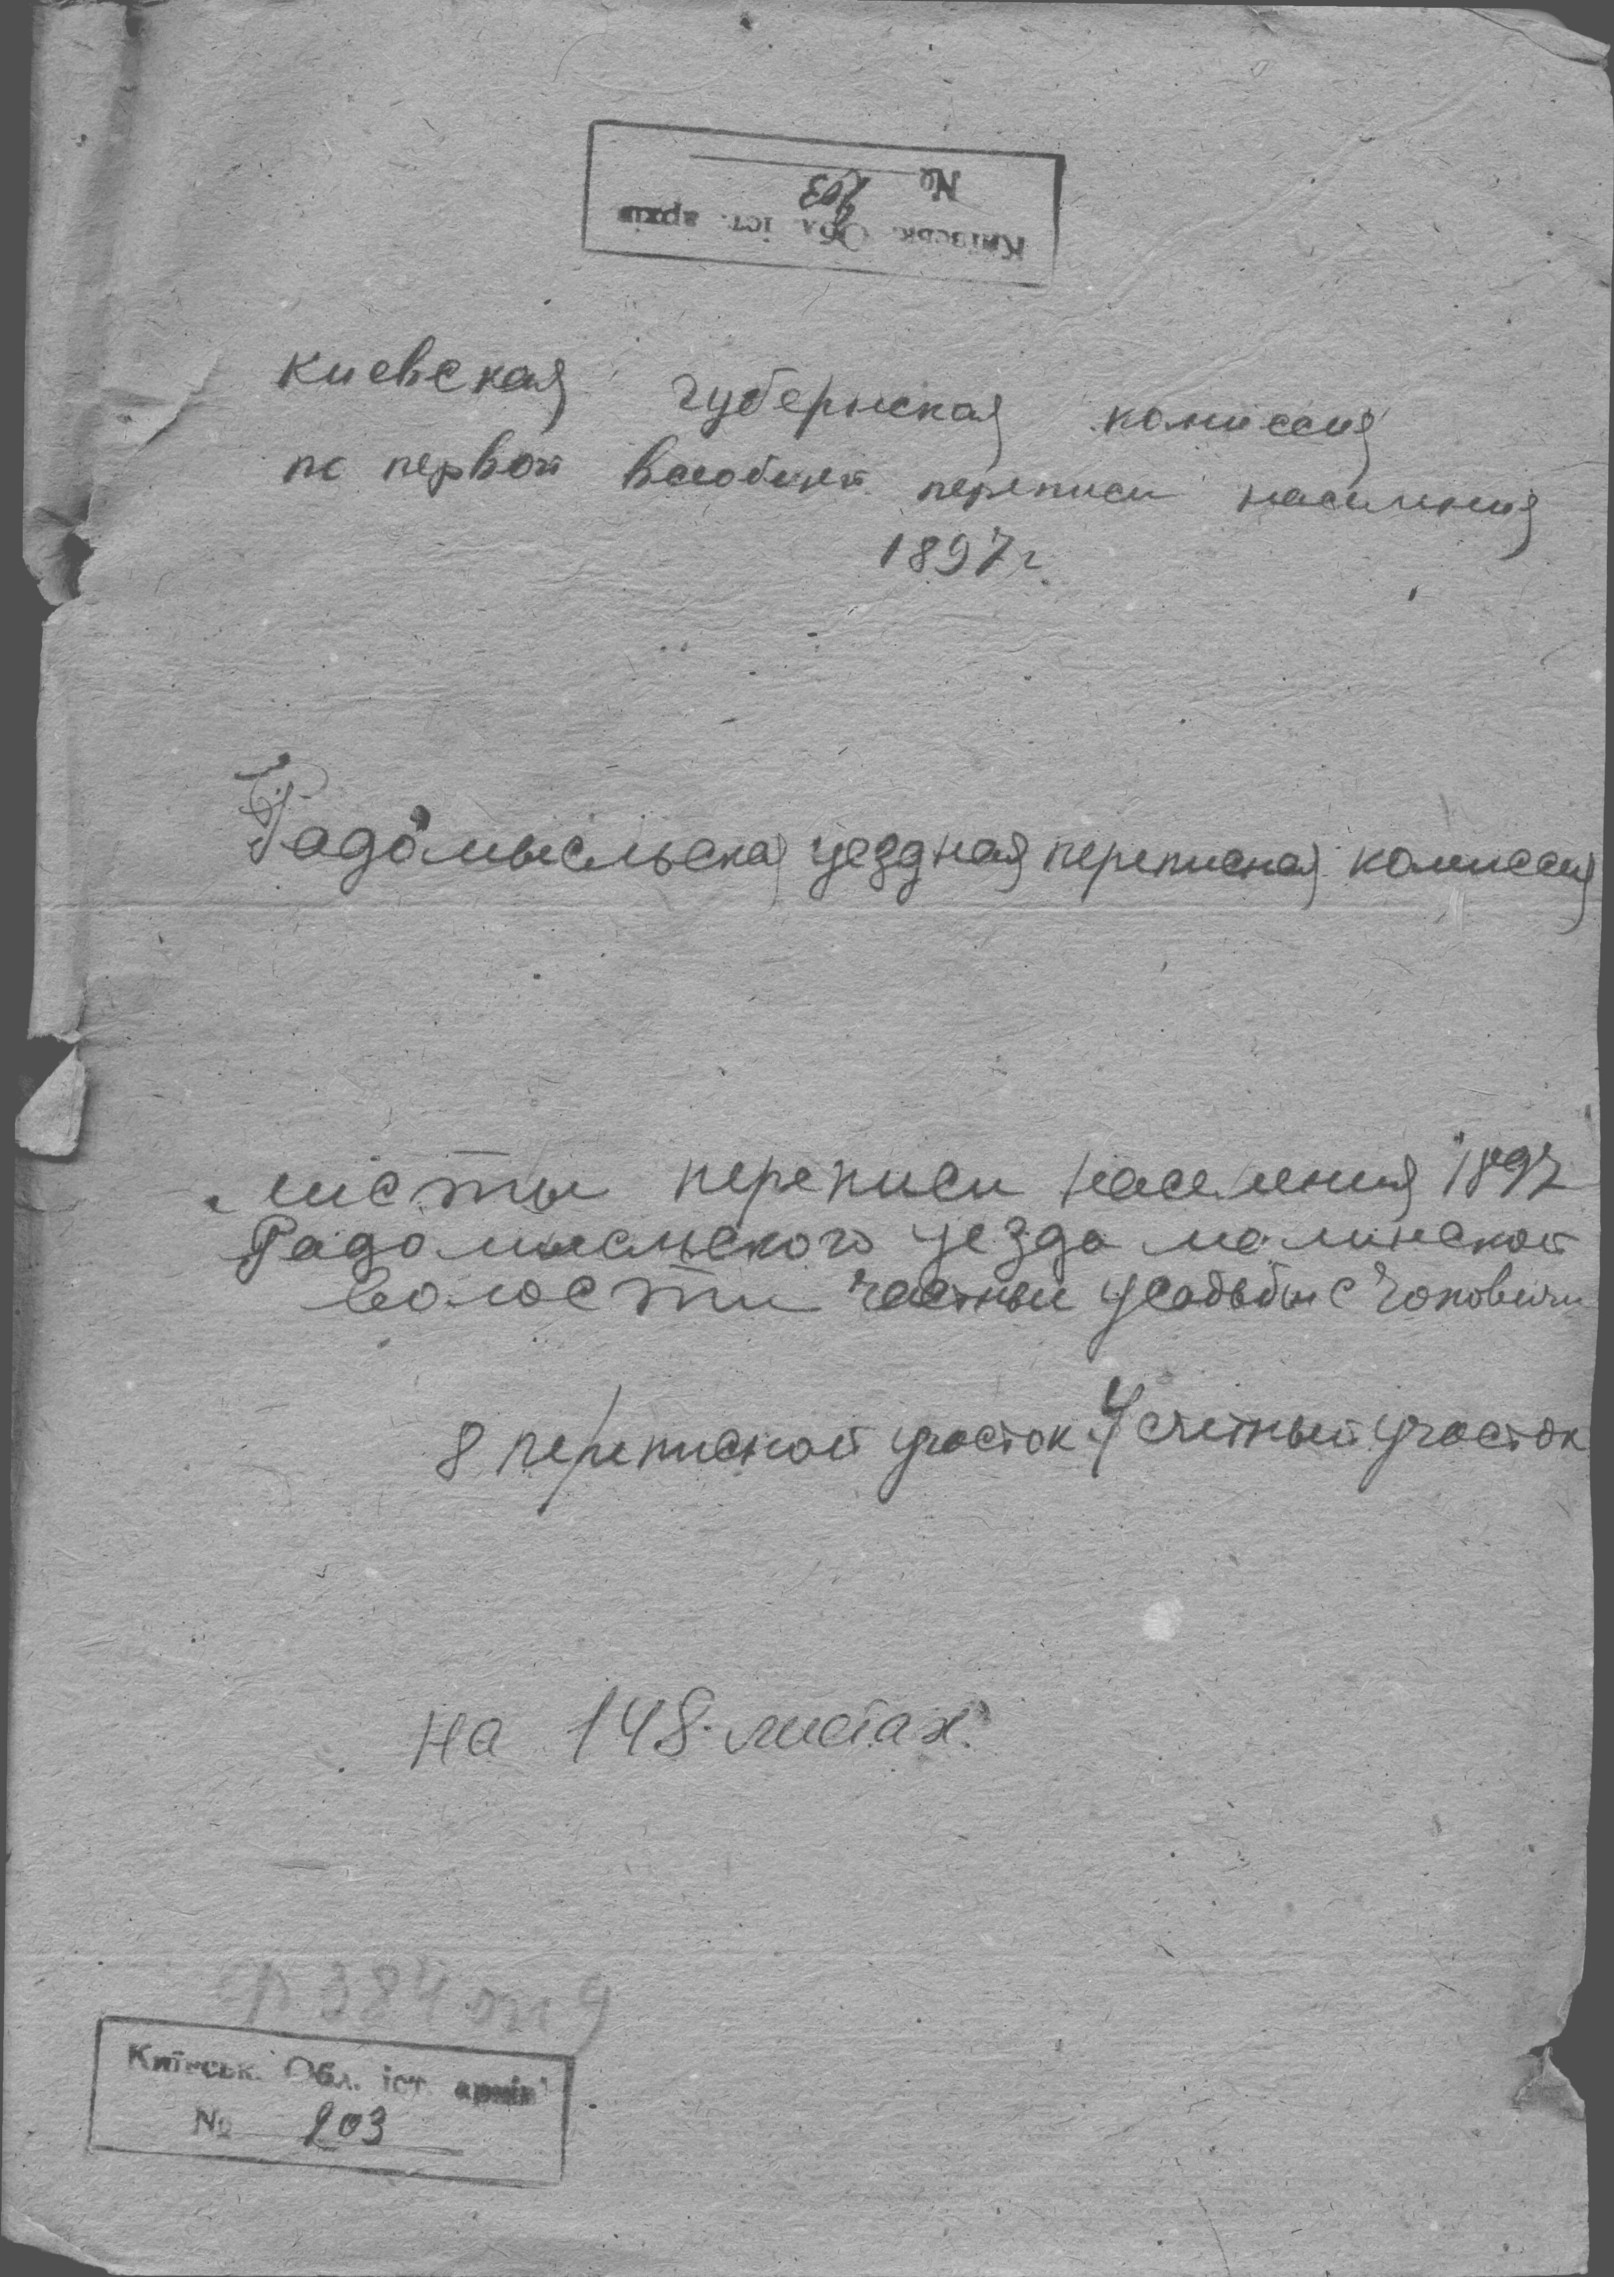 Київськ. Обл. іст. архів
№ 203
Киевская губернская комиссия
по первой всеобщей переписи населения
1897 г.
Радомысльская уездная переписная комиссия
листы переписи населения 1897
Радомысльского уезда малинской
волости частные усадьбы с Чоповичи
8 переписной участок 4 счетный участок
на 148 листах.
ф 384 оп 9
Київськ. Обл. іст. архів
№ 203